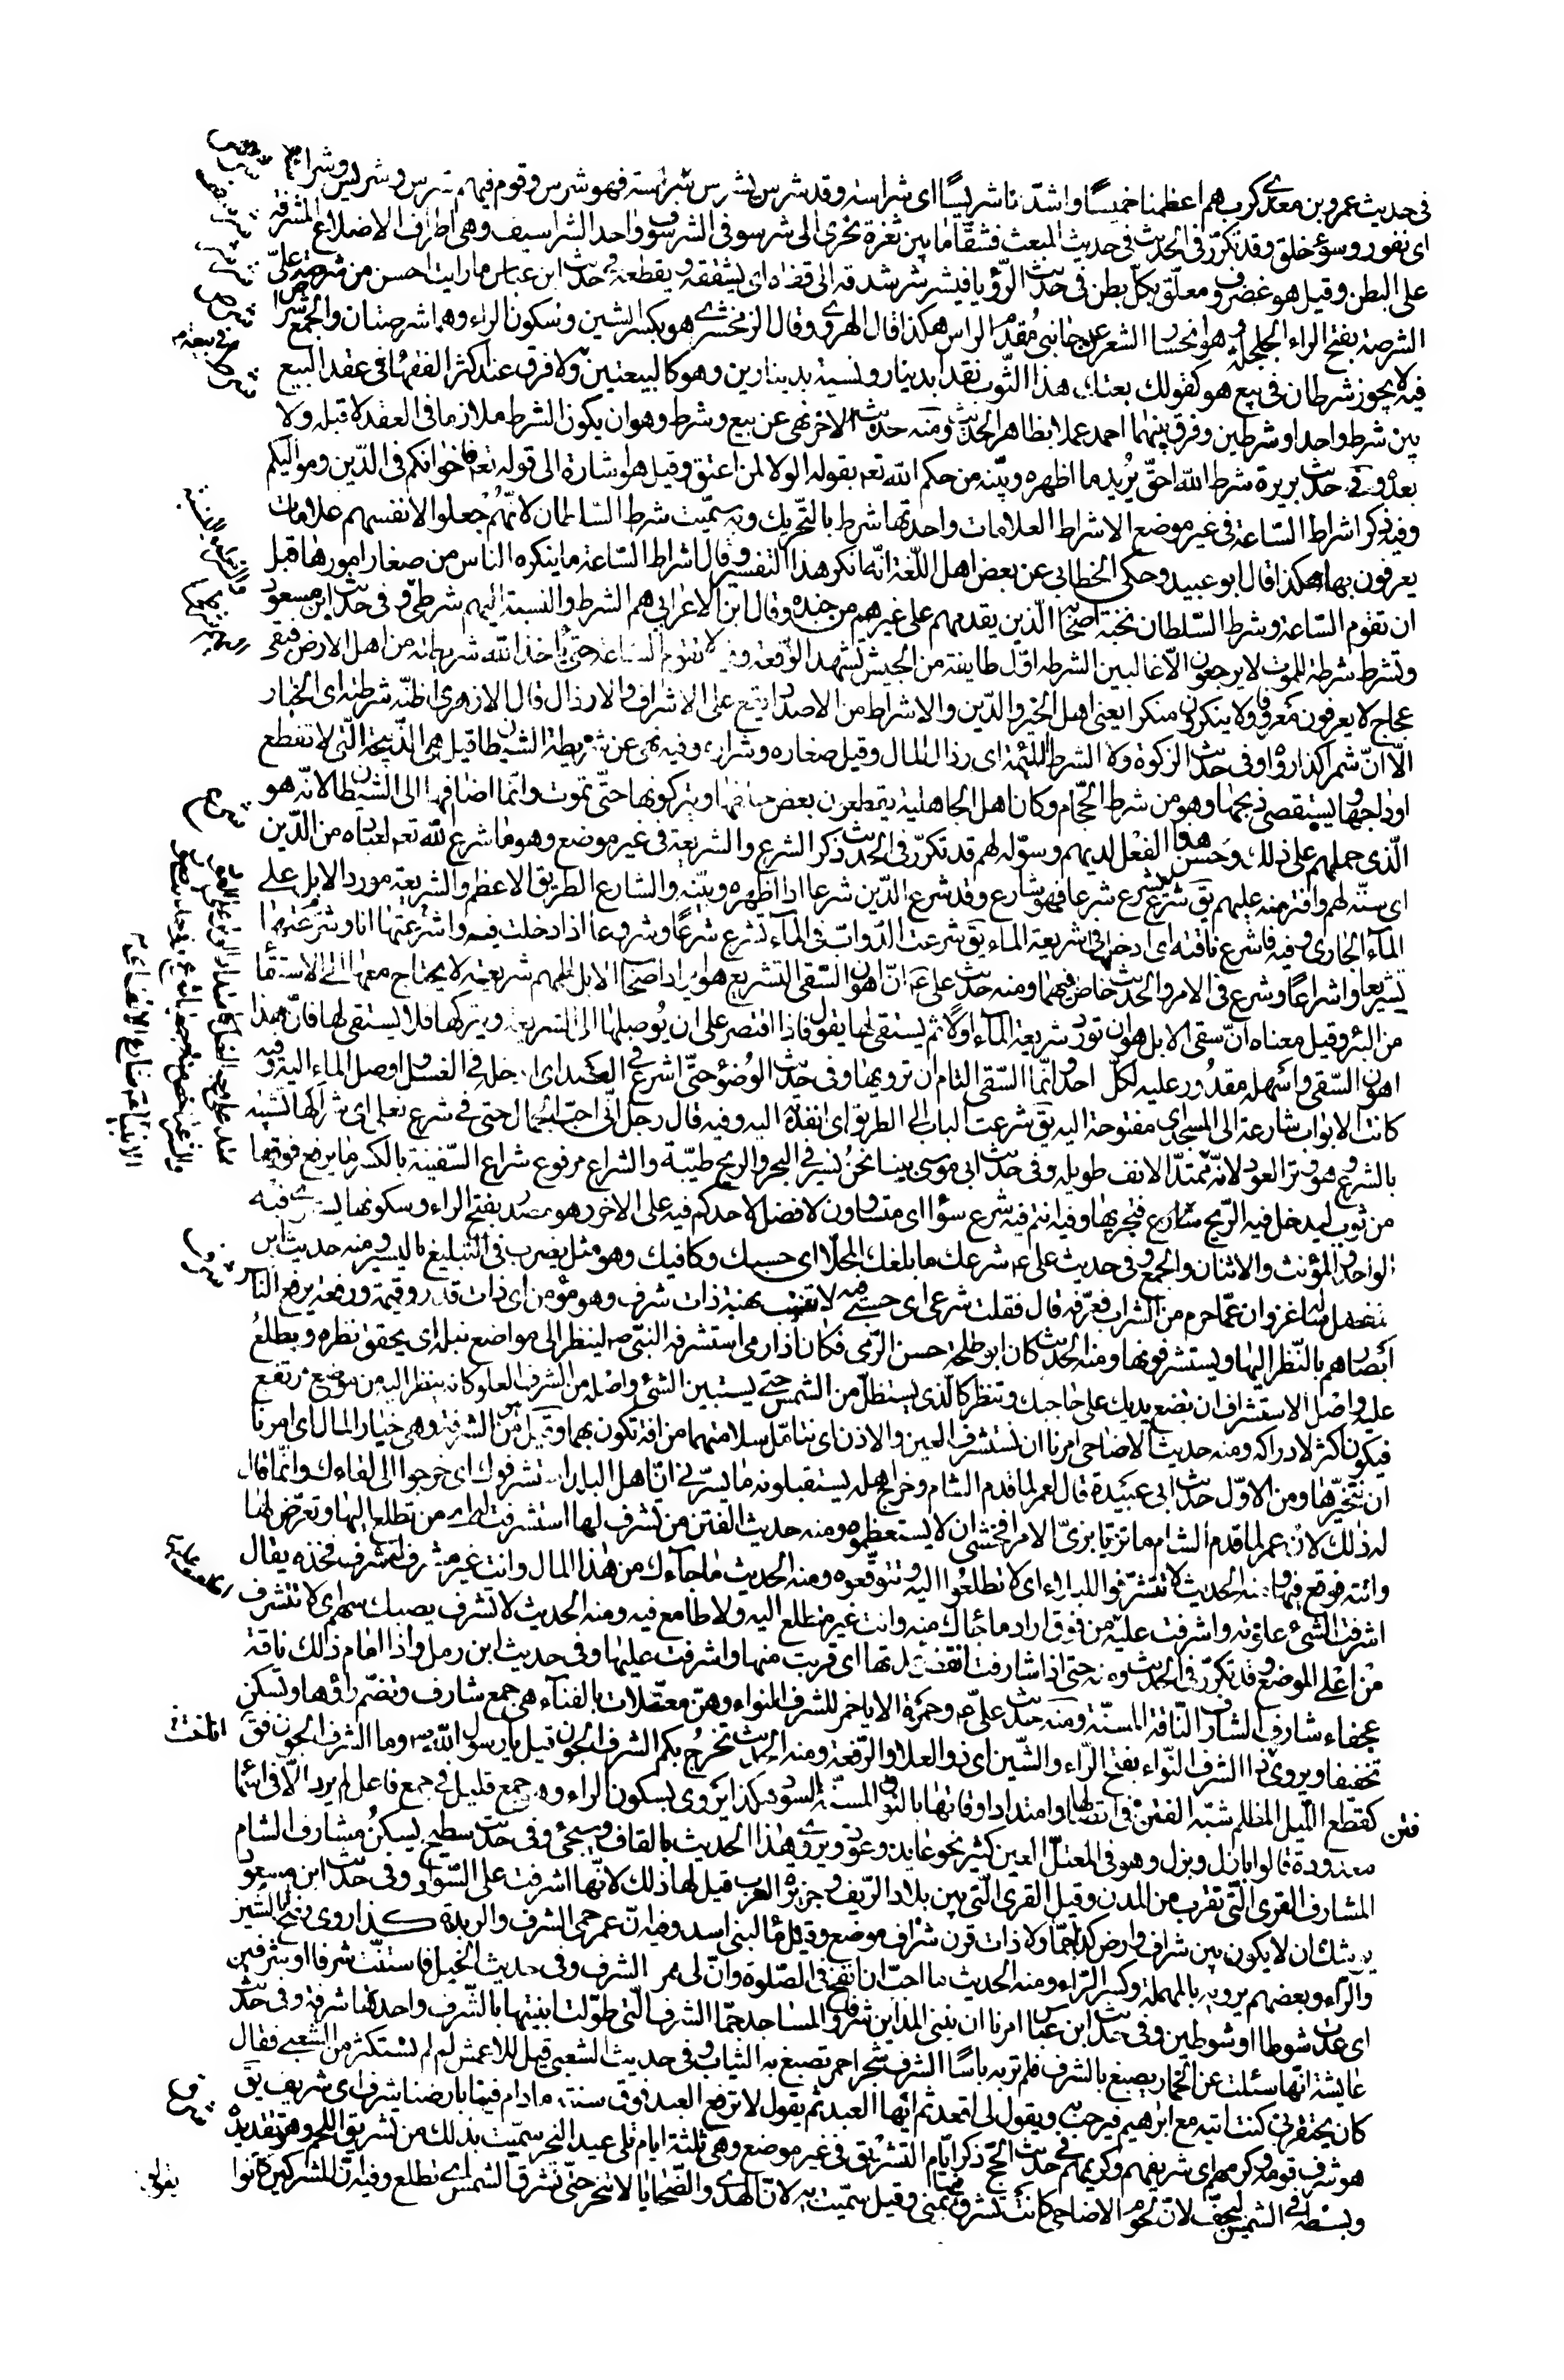 في حديث عمرو بن معدي كرب هم اعظمنا خميسًا واشدّنا شريسًا اى شراسة وقد شرس يشرس شراسة فهو شرس وقوم فيهم شرس وشريس وشراسة
اى نفور وسوء خلق وقد تكرّر فى الحديث فى حديث المبعث فشقّا ما بين ثغرة نحرى الى شرسوفى الشرسوف واحد الشراسيف وهى اطراف الاضلاع المشرفة
على البطن وقيل هو غضروف معلّق بكلّ بطن فى حديث الرّؤيا فيشرشر شدقه الى قفاه اى يشققه ويقطعه فى حديث ابن عباس ما رايت احسن من شرصة علىّ
الشرصة بفتح الراء الجلحة وهو انحسار الشعر عن جانبى مقدّم الراس هكذا قال الهروى وقال الزمخشرى هو بكسر الشين وسكون الراء وهما شرصتان والجمع شراص
فيه لا يجوز شرطان فى بيع هو كقولك بعتك هذا الثّوب نقدا بدينار ونسية بدينارين وهو كالبيعتين ولا فرق عند اكثر الفقهاء فى عقد البيع
بين شرط واحد او شرطين وفرق بينهما احمد عملا بظاهر الحديث ومنه حديث الاخر نهى عن بيع وشرط وهو ان يكون الشرط ملازما فى العقد لا قبله ولا
بعده وفى حديث بريرة شرط الله احقّ يريد ما اظهره وبيّنه من حكم الله تعه بقوله الولا لمن اعتق وقيل هو اشارة الى قوله تعه فاخوانكم فى الدّين ومواليكم
وفيه ذكر اشراط السّاعة فى غير موضع الاشراط العلامات واحدتها شرط بالتحريك وبه سمّيت شرط السّلطان لانّهم جعلوا لانفسهم علامات
يعرفون بها هكذا قال ابو عبيد وحكى الخطابى عن بعض اهل اللّغة انّه انكر هذا التفسير وقال اشراط السّاعة ما ينكره الناس من صغار امورها قبل
ان تقوم السّاعة وشرط السّلطان نخبة اصحابه الّذين يقدمهم على غيرهم من جنده وقال ابن الاعرابى هم الشرط والنسبة اليهم شرطىّ وفى حديث ابن مسعود
وتشرط شرطة للموت لا يرجعون الّا غالبين الشرطة اوّل طايفة من الجيش تشهد الوقعة وفيه لا تقوم السّاعة حتى ياخذ الله شريطته من اهل الارض فيبقى
عجاج لا يعرفون معروفا ولا ينكرون منكرا يعنى اهل الخير والدّين والاشراط من الاضداد يقع على الاشراف والارذال قال الازهرى اظنّه شرطته اى الخيار
الّا انّ شمرا كذا رواه وفى حديث الزكوة ولا الشرط اللئيمة اى رذال المال وقيل صغاره وشراره وفيه نهى عن شريطة الشيطان قيل هى الذّبيحة الّتى لا تقطع
اوداجها ويستقصى ذبحها وهو من شرط الحجّام وكان اهل الجاهلية يقطعون بعض حلقها ويتركونها حتّى تموت وانّما اضافها الى الشّيطان لانّه هو
الّذى حملهم على ذلك وحسن هذا الفعل لديهم وسوّله لهم قد تكرّر فى الحديث ذكر الشرع والشريعة فى غير موضع وهو ما شرع الله تعه لعباده من الدّين
اى سنّه لهم وافترضه عليهم يق شرع يشرع شرعا فهو شارع وقد شرع الدّين شرعا اذا اظهره وبيّنه والشارع الطريق الاعظم والشريعة مورد الابل على
المآء الجارى وفيه فاشرع ناقته اى ادخلها فى شريعة الماء يق شرعت الدّوابّ فى المآء تشرع شرعًا وشروعا اذا دخلت فيه واشرعتها انا وشرّعتها
تشريعا واشراعًا وشرع فى الامر والحديث خاض فيهما ومنه حديث علىّ عم انّ اهون السّقى التشريع هو ايراد اصحاب الابل ابلهم شريعة لا يحتاج معها الى الاستقاء
من البئر وقيل معناه انّ سقى الابل هو ان تورد شريعة المآء اوّلًا ثم يستقى لها يقول فاذا اقتصر على ان يوصلها الى الشريعة ويتركها فلا يستقى لها فانّ هذا
اهون السّقى واسهله مقدور عليه لكلّ احد وانّما السّقى التام ان ترويها وفى حديث الوضوء حتّى اشرع فى العضد اى ادخله فى الغسل واوصل الماء اليه وفيه
كانت الابواب شارعة الى المسجد اى مفتوحة اليه يق شرعت الباب الى الطريق اى انفذته اليه وفيه قال رجل انّى احبّ الجمال حتى فى شرع نعلى اى شراكها تشبيه
بالشرع وهو وتر العود لانّه ممتدّ الانف طويله وفى حديث ابى موسى بينا نحن نسير فى البحر والريح طيّبة والشراع مرفوع شراع السّفينة بالكسر ما يرفع فوقها
من ثوب ليدخل فيه الريح فتجريها وفيه انتم فيه شرع سواء اى متساوون لا فضل لاحدكم فيه على الاخر وهو مصدر بفتح الراء وسكونها يستوى فيه
الواحد والمؤنث والاثنان والجمع وفى حديث على عم شرعك ما بلغك المحلّا اى حسبك وكافيك وهو مثل يضرب فى التبليغ باليسير ومنه حديث ابن
مغفل سأله غزوان عمّا حرم من الشراب فعرّفه قال فقلت شرعى اى حسبى فيه لا ينتهب نهبة ذات شرف وهو مؤمن اى ذات قدر وقيمة ورفعة يرفع الناس
ابصارهم بالنّظر اليها ويستشرفونها ومنه الحديث كان ابو طلحة حسن الرّمى فكان اذا رمى استشرفه النبىّ ص لينظر الى مواضع نبله اى يحقق نظره ويطلع
عليه واصل الاستشراف ان تضع يدك على حاجبك وتنظر كالّذى يستظلّ من الشمس حتّى يستبين الشئ واصله من الشرف العلو كانه ينظر اليه من موضع مرتفع
فيكون اكثر لادراكه ومنه حديث الاضاحى امرنا ان نستشرف العين والاذن اى نتامّل سلامتهما من افة تكون بهما وقيل من الشرفة وهى خيار المال اى امرنا
ان نتخيّرها ومن الاوّل حديث ابى عبيدة قال لعمر لمّا قدم الشام وخرج اهله يستقبلونه ما يسرّنى انّ اهل البلد استشرفوك اى خرجوا الى لقاءك وانّما قال
له ذلك لان عمر لمّا قدم الشام ما تزيّا بزىّ الامراء فخشى ان لا يستعظموه ومنه حديث الفتن من تشرف لها استشرفت له اى من تطلع اليها وتعرّض لها
واتته فوقع فيها ومنه الحديث لا تتشرّفوا للبلاء اى لا تطلعوا اليه وتتوقّعوه ومنه الحديث ما جاءك من هذا المال وانت غير مشرف له فخذه يقال
اشرفت الشئ علوته واشرفت عليه من فوق اراد ما جاءك منه وانت غير متطلع اليه ولا طامع فيه ومنه الحديث لا تشرف يصبك سهم اى لا تتشرف
من اعلى الموضع وقد تكرّر فى الحديث ومنه حتى اذا شارفت انقضاء عدّتها اى قربت منها واشرفت عليها وفى حديث ابن زمل واذا امام ذلك ناقة
عجفاء شارف الشارف النّاقة المسنّة ومنه حديث علىّ عم وحمزة الا يا حمز للشرف النواء وهنّ معقّلات بالفناء هى جمع شارف وتضمّ راؤها وتسكن
تخفيفا ويروى ذا الشرف النّواء بفتح الرّاء والشّين اى ذو العلاء والرّفعة ومنه الحديث تخرج بكم الشرف الجون قيل يا رسول الله ص وما الشرف الجون فق
فتن كقطع اللّيل المظلم شبّه الفتن فى اتصالها وامتداد اوقاتها بالنّوق المسنّة السود هكذا يروى بسكون الراء وهو جمع قليل فى جمع فاعل لم يرد الّا فى اسما
معدودة قالوا بازل وبزل وهو فى المعتلّ العين كثير نحو عايذ وعوذ ويروى هذا الحديث بالقاف وسيجئ وفى حديث سطيح يسكن مشارف الشام
المشارف القرى الّتى تقرب من المدن وقيل القرى الّتى بين بلاد الرّيف وجزيرة العرب قيل لها ذلك لانّها اشرفت على السّواد وفى حديث ابن مسعود
يوشك ان لا يكون بين شراف وارض كذا جمّاء ولا ذات قرن شراف موضع وقيل ماء لبنى اسد وفيه انّ عمر حمى الشرف والربذة كذا روى بفتح الشين
والرّاء وبعضهم يرويه بالمهملة وكسر الرّاء ومنه الحديث ما احبّ ان انفخ فى الصّلوة وانّ لى ممر الشرف وفى حديث الخيل فاستنّت شرفا او شرفين
اى عدت شوطا او شوطين وفى حديث ابن عباس امرنا ان نبنى المداين شرفا والمساجد جمّا الشرف الّتى طوّلت ابنيتها بالشّرف واحدتها شرفة وفى حديث
عايشة انّها سئلت عن الخمار يصبغ بالشرف فلم تر به باسًا الشرف شجر احمر تصبغ به الثياب وفى حديث الشعبى قيل للاعمش لم لم تستكثر من الشعبى فقال
كان يحتقرنى كنت اتيه مع ابراهيم فيرحب به ويقول لى اقعد ثم ايّها العبد ثم يقول لا ترفع العبد فوق سنته ما دام فينا بارضنا شرف اى شريف يق
هو شرف قومه وكرمهم اى شريفهم وكريمهم فى حديث الحجّ ذكر ايّام التشريق فى غير موضع وهى ثلثة ايام تلى عيد النحر سمّيت بذلك من تشريق اللحم وهو تقديده
وبسطه فى الشمس ليجفّ لانّ لحوم الاضاحى كانت تشرق فيها بمنى وقيل سمّيت به لانّ الهدى والضّحايا لا تنحر حتّى تشرق الشمس اى تطلع وفيه انّ المشركين كانوا
يقولون